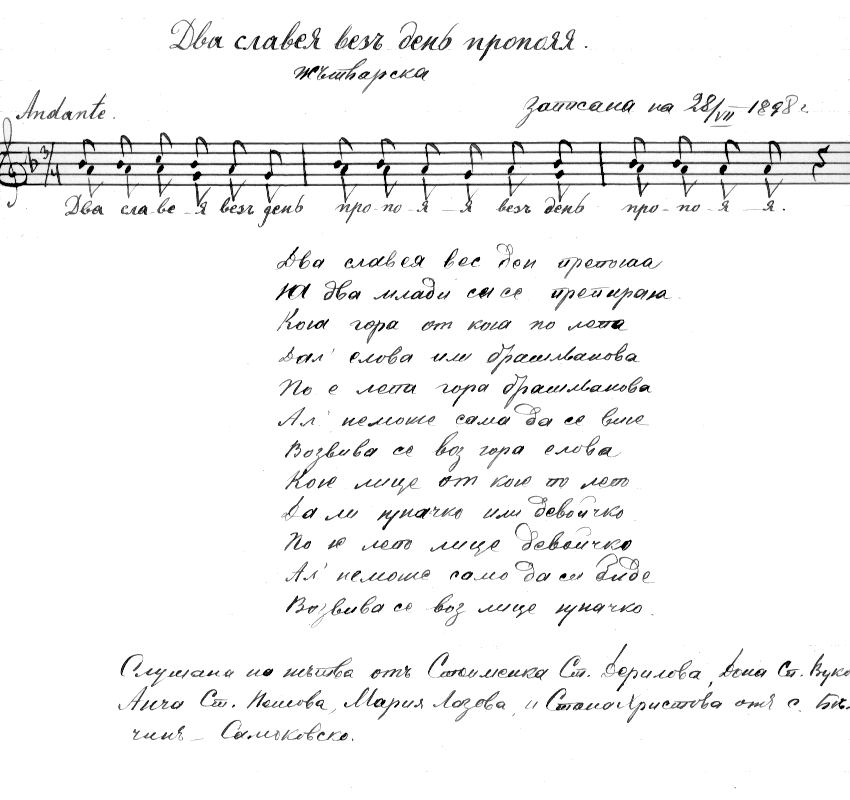 Два славея везъ день пропояя.
Жътварска
Andante.
Записана на 28/VII 1898 г.
3/4
Два сла-ве-я везъ день про-по-я-я везъ день про-по-я-я.
Два славея вес ден препоıаа
На два млади си се препираıа.
Коıа гора от коıа по лепа
Дал' елова или брашљанова
По е лепа гора брашљанова
Ал' неможе сама да се вие
Возвива се воз гора елова
Коıе лице от коıе по лепо
Да ли јуначко или девойчко
По е лепо лице девойчко
Ал' неможе само да си биде
Возвива се воз лице јуначко.
Слушана на жътва отъ Стоименка Ст. Дерилова, Дона Ст. Вуко
Анча Ст. Пешова, Мария Лазова, и Стана Христова отъ с. Бѣ-
чинъ - Самоковско.